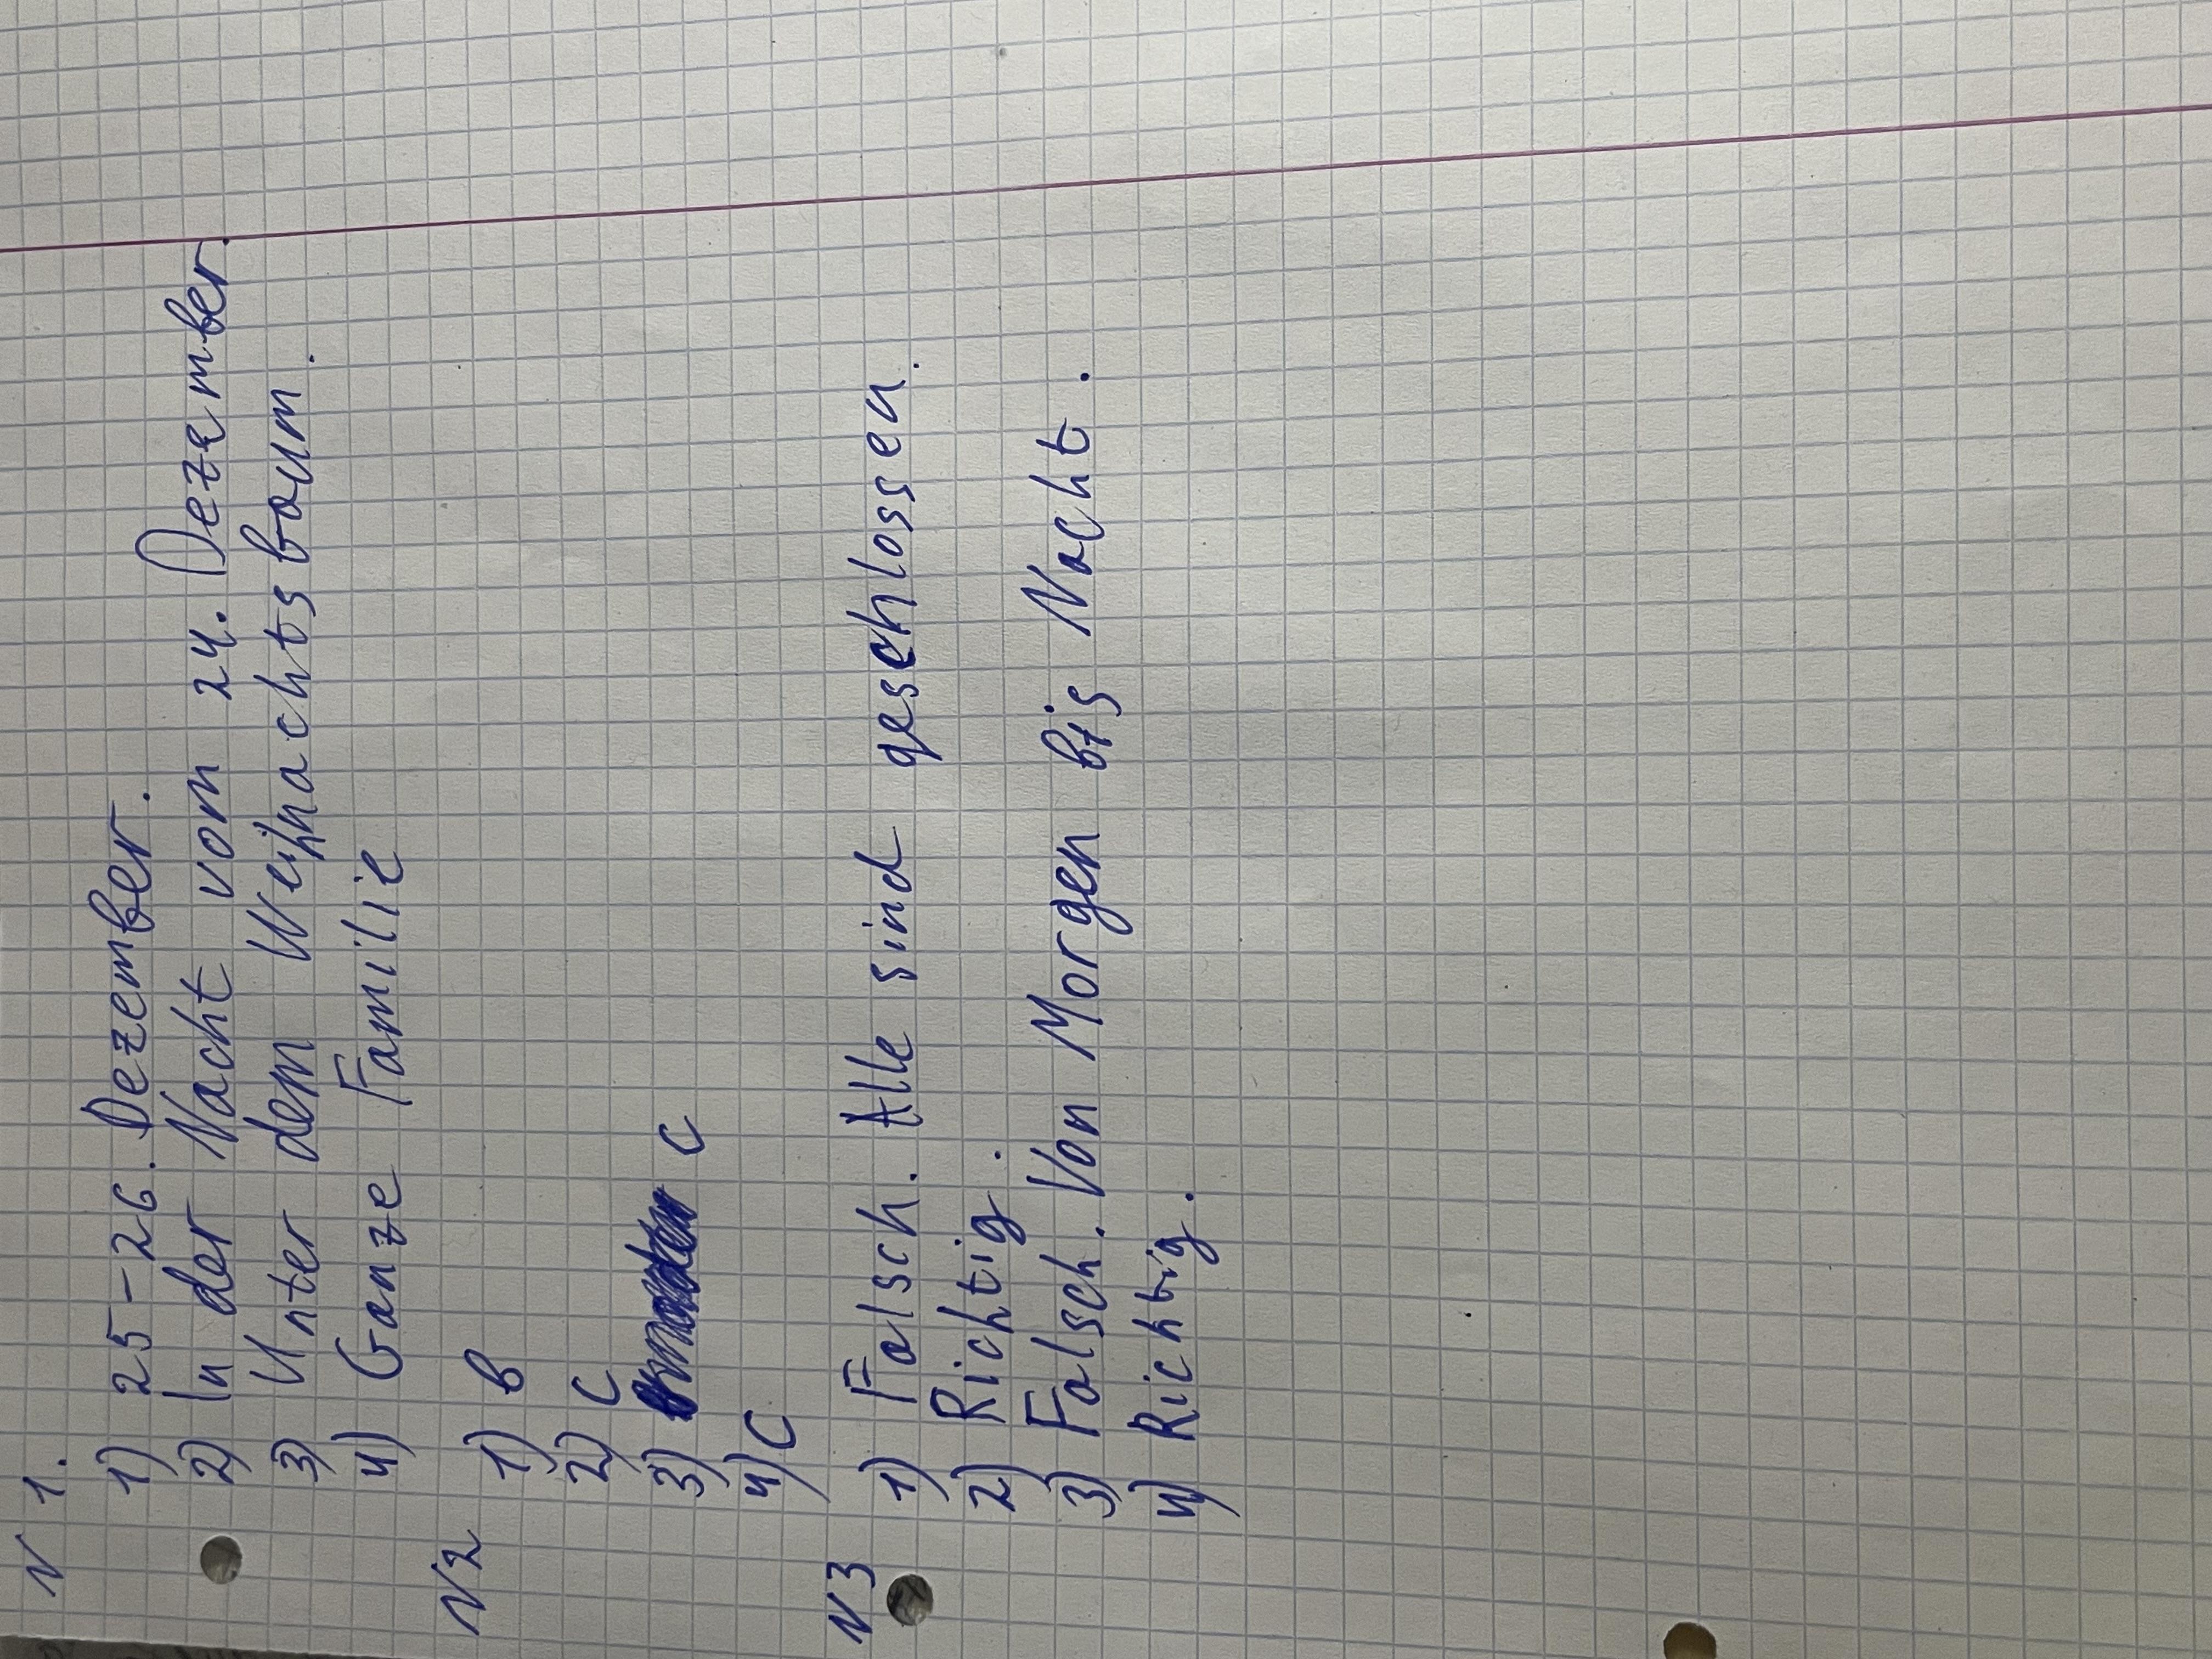 N 1.
1) 25-26. Dezember.
2) In der Nacht vom 24. Dezember.
3) Unter dem Weihnachtsbaum.
4) Ganze Familie
N2
1) B
2) C
3) C
4) C
N3
1) Falsch. Alle sind geschlossen.
2) Richtig.
3) Falsch. Von Morgen bis Nacht.
4) Richtig.